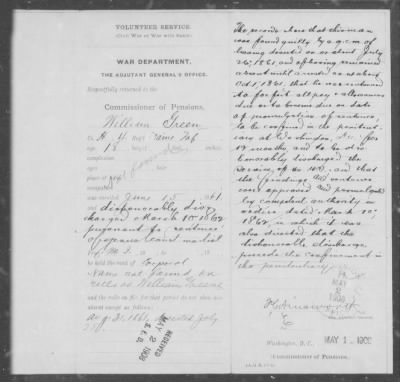 VOLUNTEER SERVICE.
(Civil War or War with Spain.)
WAR DEPARTMENT,
THE ADJUTANT GENERAL'S OFFICE.
Respectfully returned to the
Commissioner of Pensions.
William Green
Co H, 4 Reg't Maine Inf
age 18
complexion
eyes
place of
occupation
was enrolled June 15, 1861
and dishonorably dis-
charged March 10 1862
pursuant to sentence
of general court martial
he held the rank of
Name not found on
rolls as William
and the rolls on file for that period do not show him
absent except as follows:
Aug 31, 1861, deserted July
RECEIVED
MAY 2 1900
The records show that this man
was found guilty by a G.C.M. of
having deserted on or about July
1861 and of having remained
absent until arrested on or about
Oct 1861, that he was sentenced
to forfeit all pay & allowances
due or to become due on date
of promulgation of sentence,
to be confined in the peniten-
tiary at Washington, D.C. for
months, and to be dis-
honorably discharged the
service, and that
the findings and sentence
were approved and promulgated
by competent authority in
orders dated March 10,
1862, in which it was
also directed that the
dishonorable discharge
precede the confinement in
the penitentiary
MAY
2
1900
F C Ainsworth
Washington, D. C., MAY 1 - 1900
(Commissioner of Pensions.